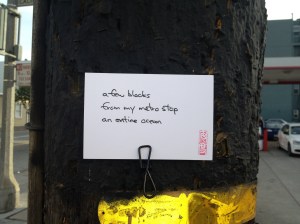 a few blocks
from my metro stop
an entire ocean